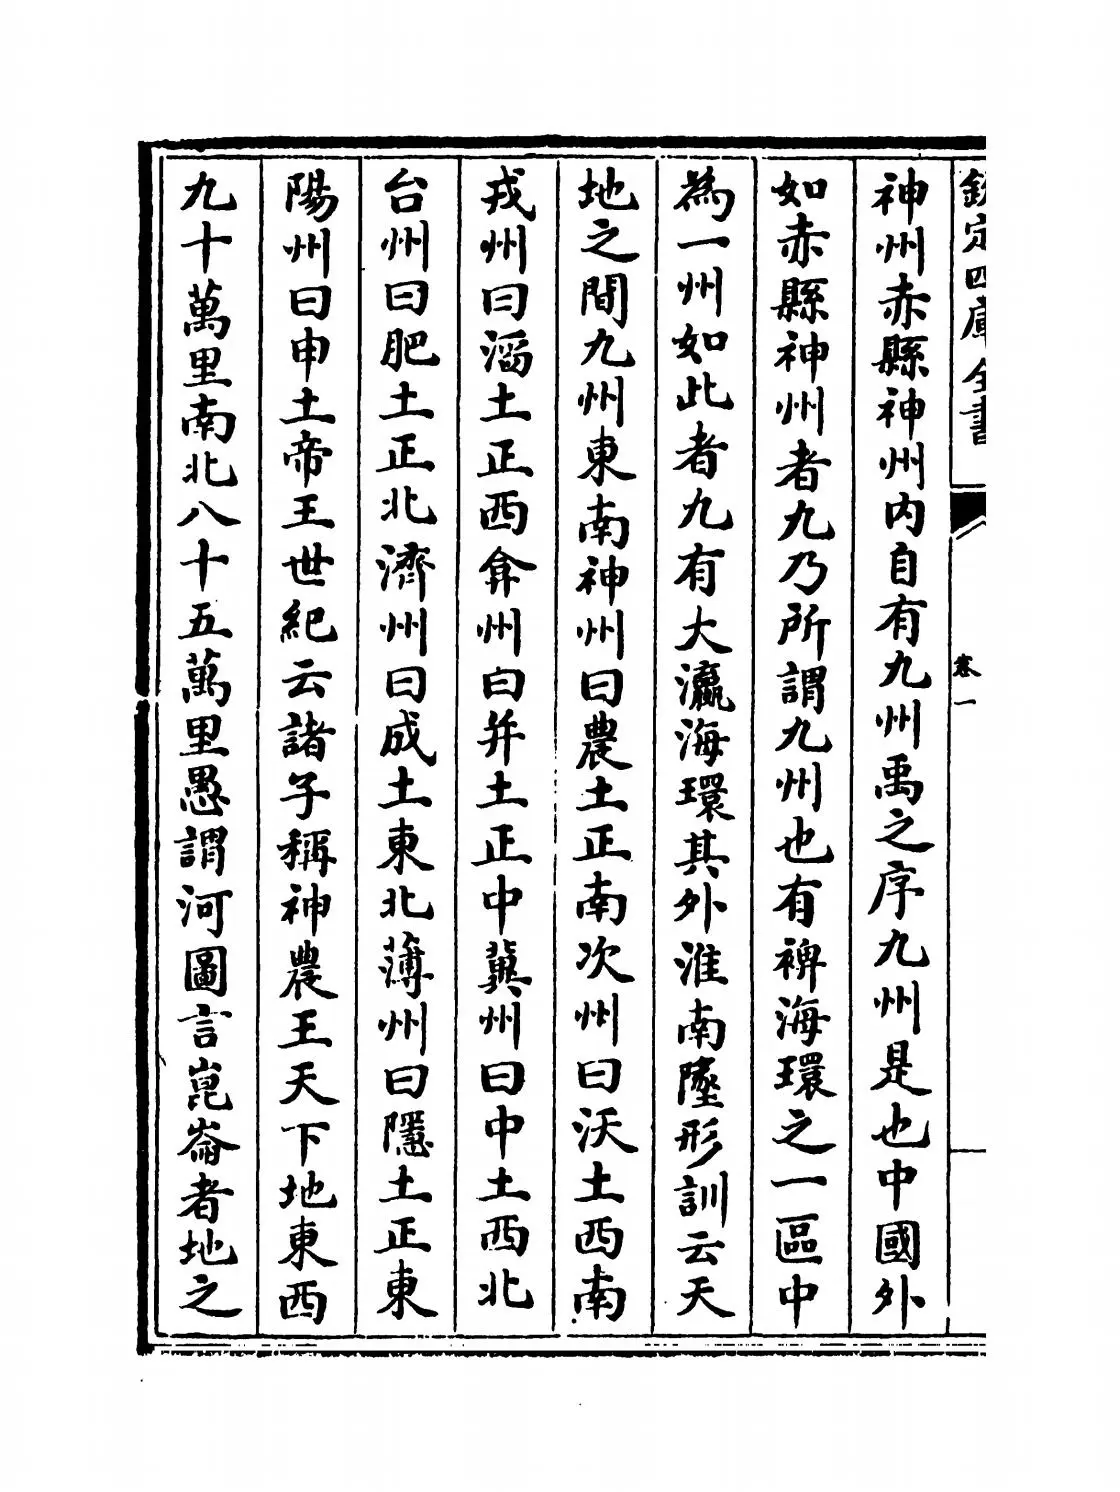 欽定四庫全書
卷一
神州赤縣神州內自有九州禹之序九州是也中國外
如赤縣神州者九乃所謂九州也有裨海環之一區中
為一州如此者九有大瀛海環其外淮南墬形訓云天
地之間九州東南神州曰農土正南次州曰沃土西南
戎州曰滔土正西弇州曰并土正中冀州曰中土西北
台州曰肥土正北濟州曰成土東北薄州曰隱土正東
陽州曰申土帝王世紀云諸子稱神農王天下地東西
九十萬里南北八十五萬里愚謂河圖言崑崙者地之